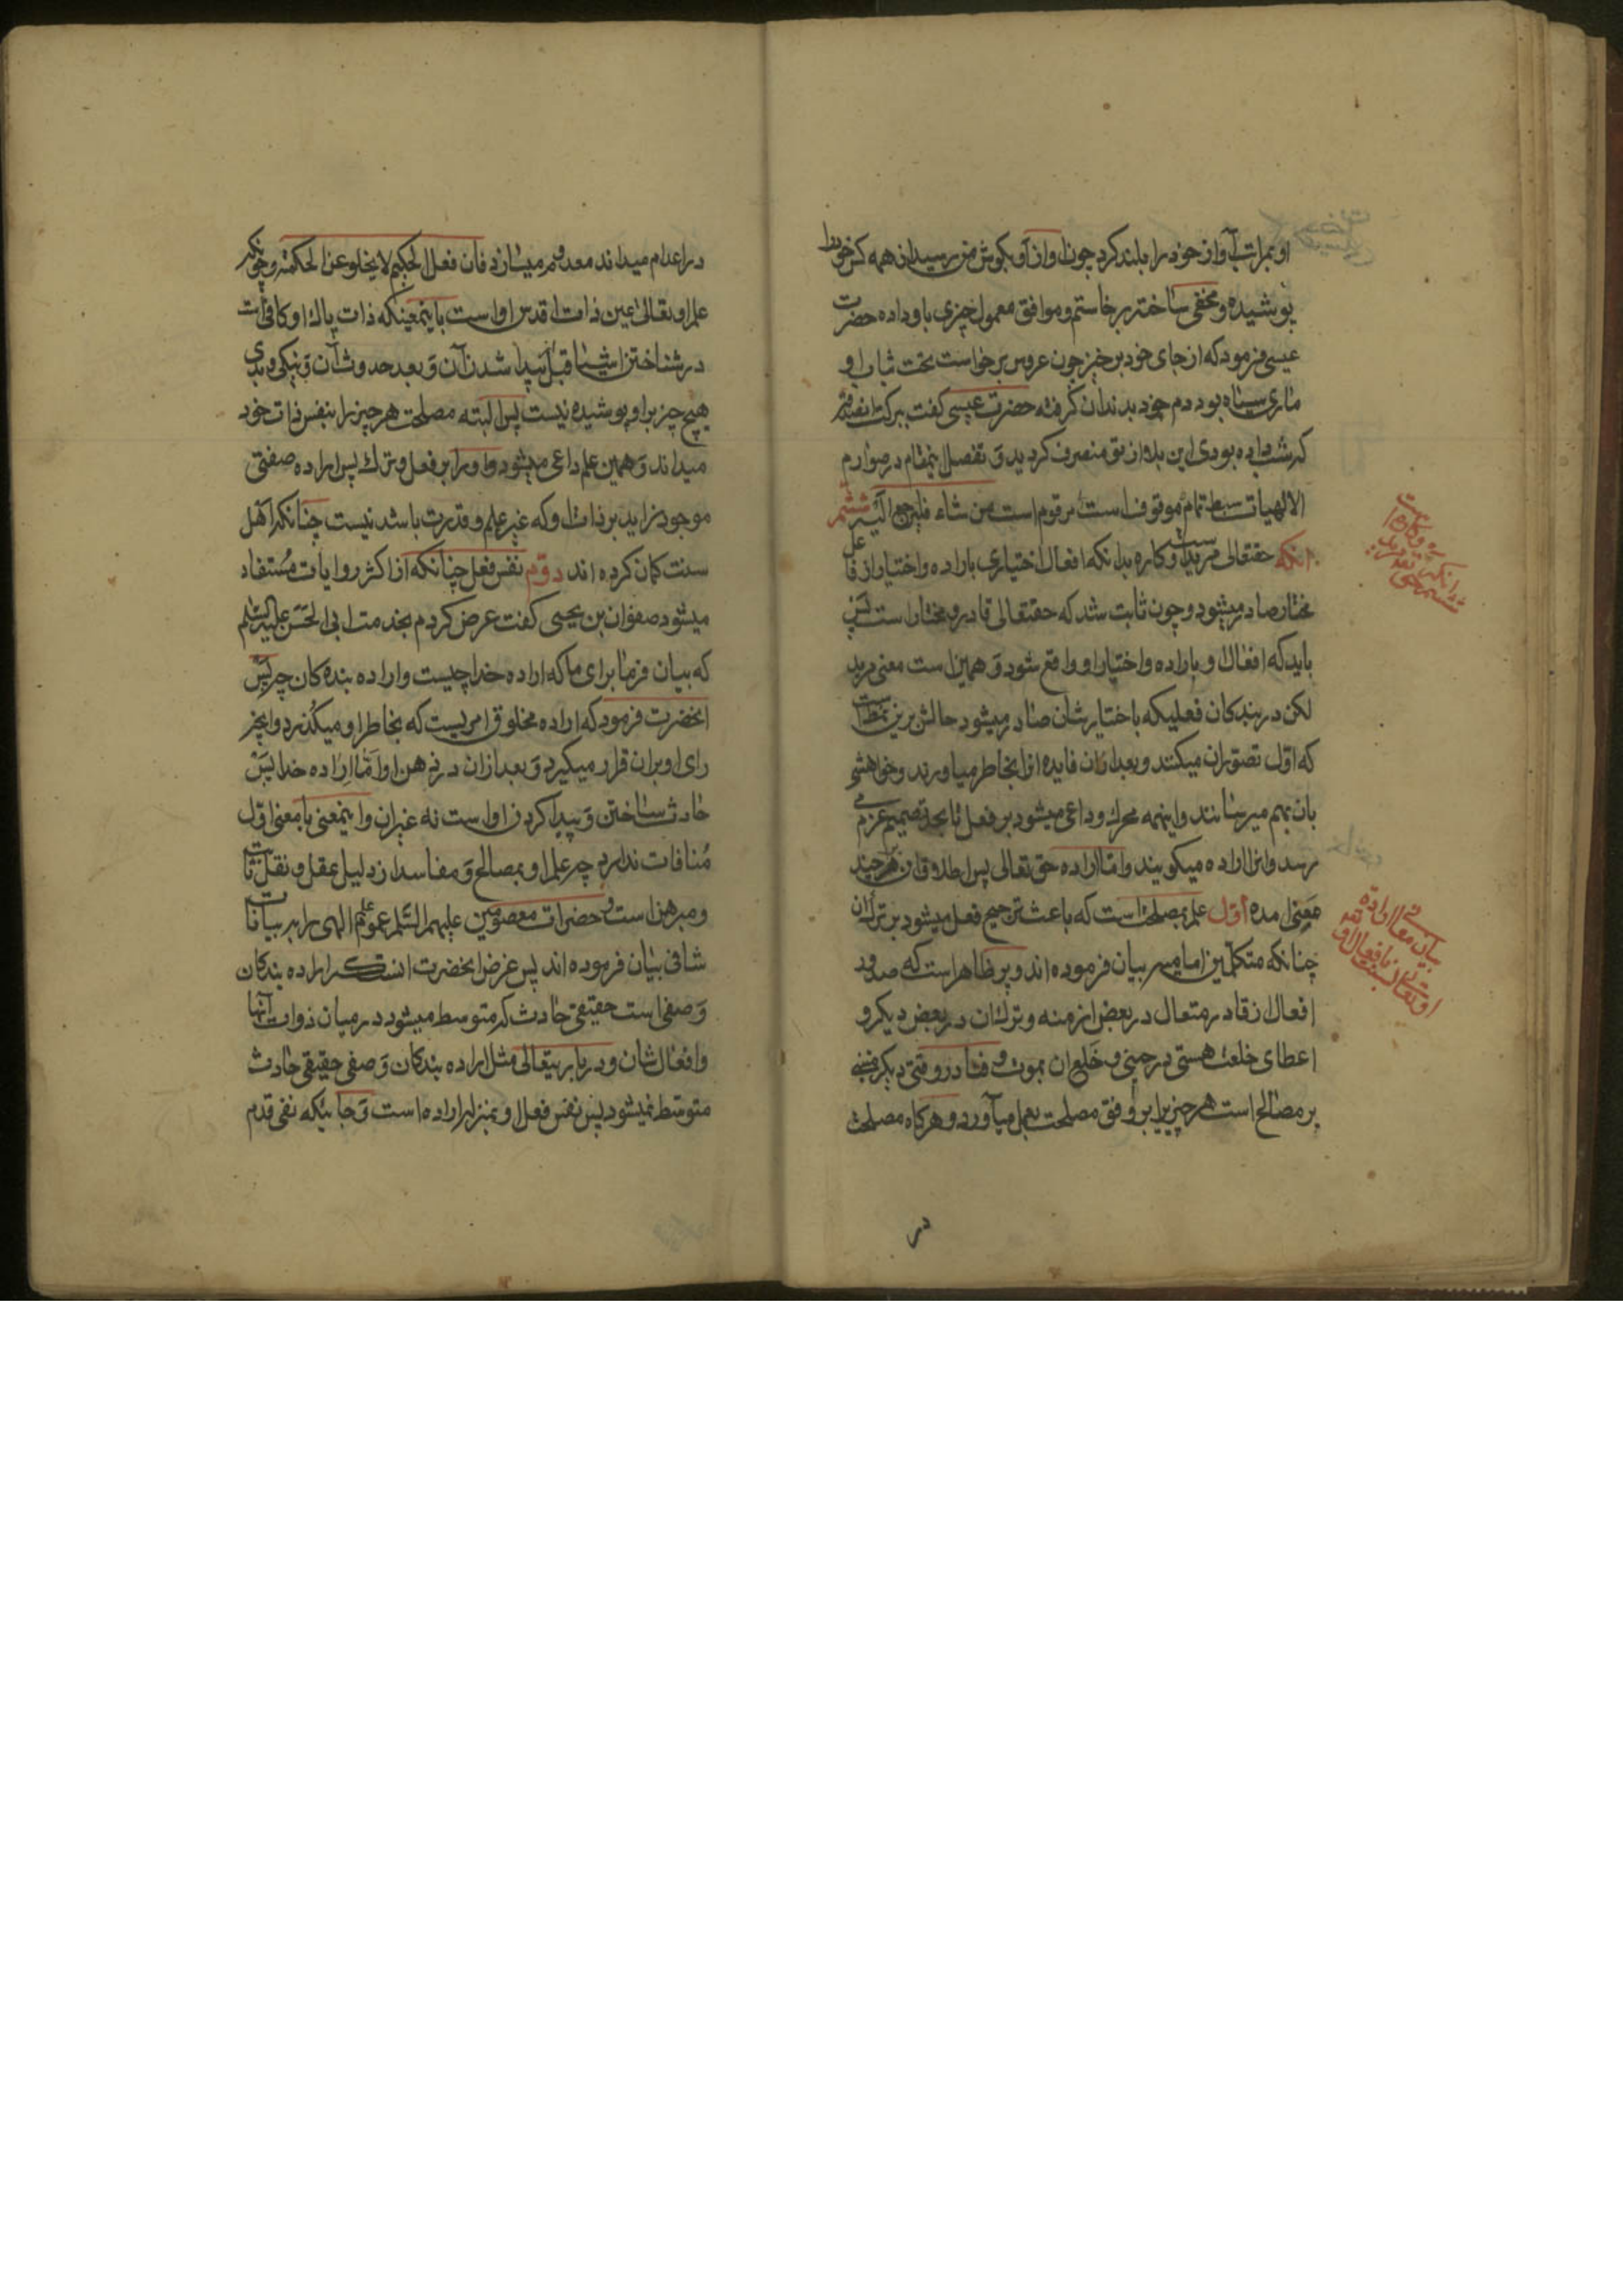 او بمراتب آواز خود را بلند کرد چون آواز او بکوش من رسید از همه کس خود را
پوشیده و مخفی ساخته برخاستم و موافق معمول چیزی باو داده حضرت
عیسی فرمود که از جای خود برخیز چون عروس برخواست تحت ثیاب او
ماری سیاه بود دم خود بدندان گرفته حضرت عیسی کفت ببرکت تصدقی
که شب داده بودی این بلا از تو منصرف کردید و تفصیل اینمقام در صوارم
الالهیات ببسط تمام موقوف است مرقوم است من شاء فلیرجع الیه ششم
آنکه حقتعالی مرید است و کاره بدانکه افعال اختیاری باراده و اختیار از فاعل
مختار صادر میشود و چون ثابت شد که حقتعالی قادر و مختار است پس
باید که افعال او باراده و اختیار او واقع شود و همین است معنی مرید
لکن در بندکان فعلیکه باختیار شان صادر میشود حالش برین نمط است
که اول تصور آن میکنند و بعد از آن فایده آنرا بخاطر میاورند و خواهشی
بآن بهم میرسانند و اینهمه محرک و داعی میشود بر فعل تا بحد تصمیم عزم
رسد و آنرا اراده میکویند و اما اراده حق تعالی پس اطلاق آن بر چند
معنی آمده اول علم بمصلحت است که باعث ترجیح فعل میشود بر ترک آن
چنانکه متکلمین امامیه بیان فرموده اند و پر ظاهر است که صدور
افعال از قادر متعال در بعض ازمنه و ترک آن در بعض دیکر و
اعطای خلعت هستی در حینی و خلع آن بموت و فنا در وقتی دیکر مبنی
بر مصالح است هر چیز را بر وفق مصلحت بعمل میآورد و هرکاه مصلحت
در
ششم آنکه حق تعالی مرید است و کاره
بیان معانی اراده او تعالی
در اعدام میداند معدوم میسازد فان فعل الحکیم لا یخلو عن الحکمة و چونکه
علم او تعالی عین ذات اقدس او است باینمعنیکه ذات پاک او کافی است
در شناختن اشیا قبل پیدا شدن آن و بعد حدوث آن و نیکی و بدی
هیچ چیز بر او پوشیده نیست پس البته مصلحت هر چیز را بنفس ذات خود
میداند و همین علم داعی میشود او را بر فعل و ترک پس اراده صفتی
موجود زاید بر ذات او که غیر علم و قدرت باشد نیست چنانکه اهل
سنت کمان کرده اند دوم نفس فعل چنانکه از اکثر روایات مستفاد
میشود صفوان بن یحیی کفت عرض کردم بخدمت ابی الحسن علیه السلم
که بیان فرما برای ما که اراده خدا چیست و اراده بنده کان چه پس
آنحضرت فرمود که اراده مخلوق امریست که بخاطر او میکذرد و آنچه
رای او بر آن قرار میکیرد و بعد از آن در ذهن او اما اراده خدا پس
حادث ساختن و پیدا کردن او است نه غیر آن و اینمعنی با معنی اول
منافات ندارد چه علم او بمصالح و مفاسد از دلیل عقل و نقل ثابت
و مبرهن است و حضرات معصومین علیهم السلم عموم علم الهی را ببیانات
شافی بیان فرموده اند پس غرض آنحضرت آنست که اراده بندکان
وصفی است حقیقی حادث که متوسط میشود در میان ذوات آنها
و افعال شان و در باریتعالی مثل اراده بندکان وصفی حقیقی حادث
متوسط نمیشود پس نفس فعل او بمنزله اراده است و جائیکه نفی قدم